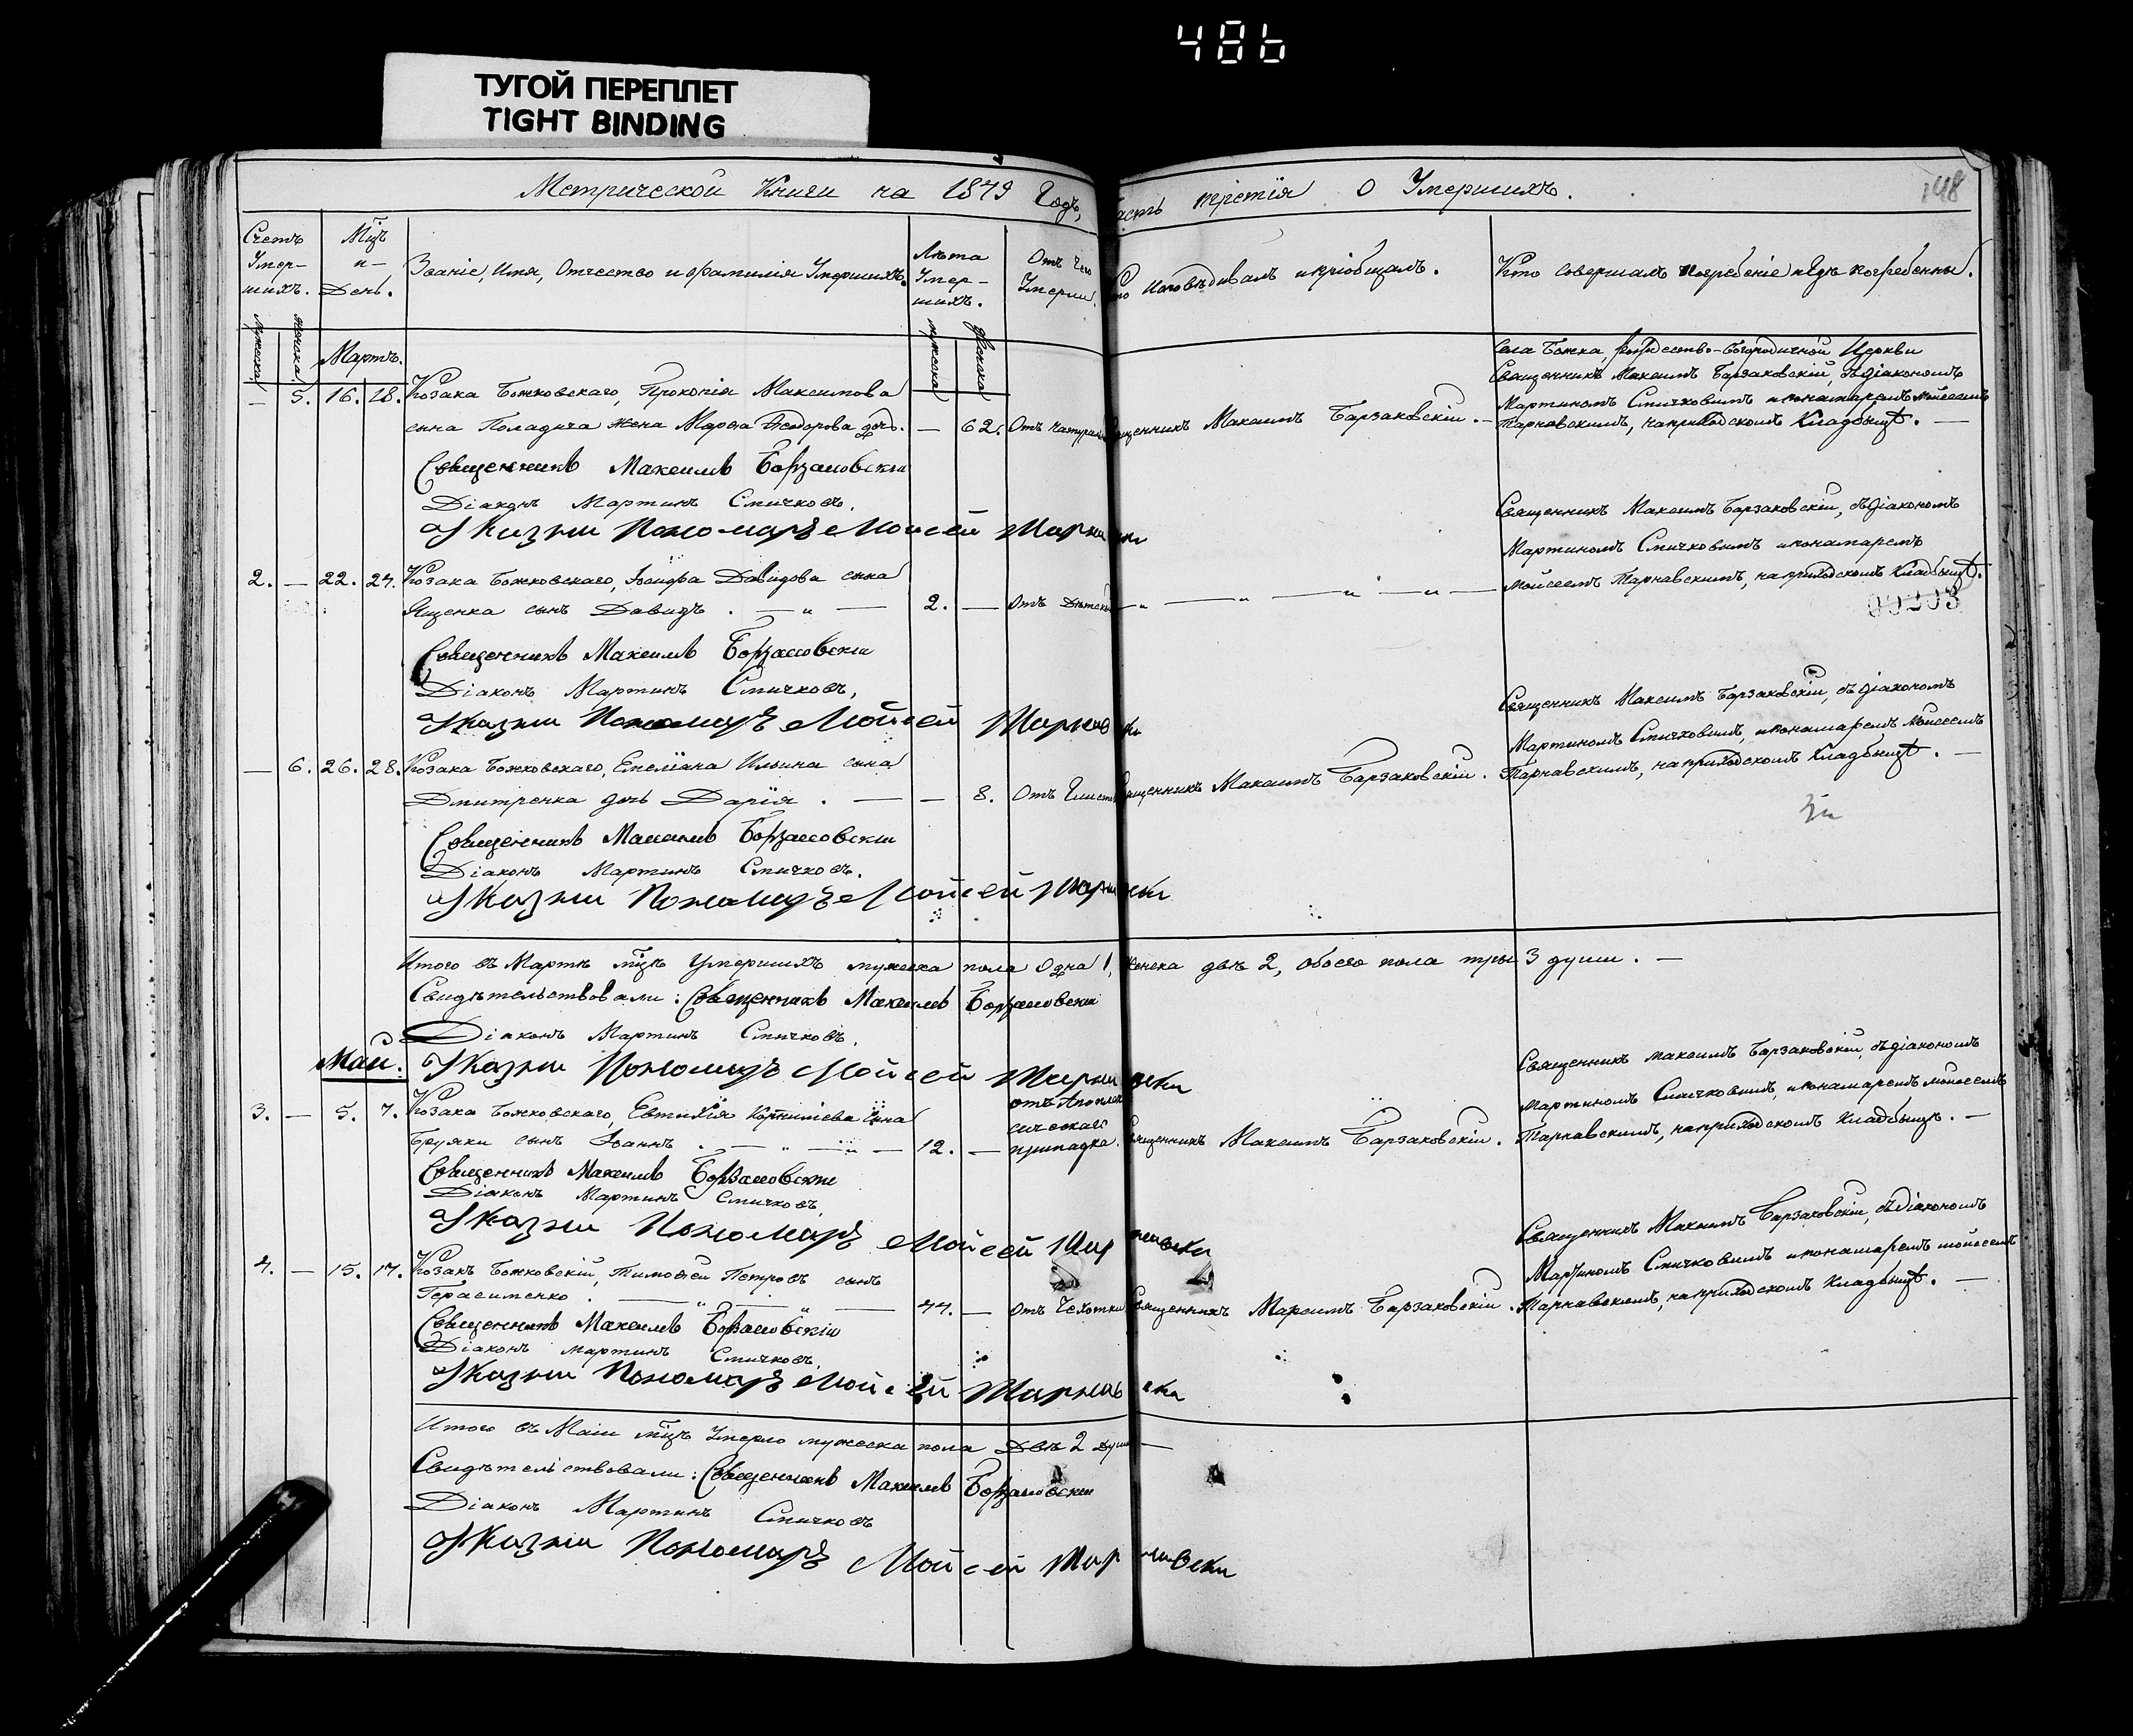 486
ТУГОЙ ПЕРЕПЛЕТ
TIGHT BINDING
Метрической Книги на 1879 Годъ, часть третія о Умершихъ.
148
Счетъ Умер-шихъ.
Мцъ и День.
Званіе, Имя, Отчество и фамилія Умершихъ.
Лѣта Умер-шихъ.
Отъ чего Умерли.
Кто исповѣдивалъ и пріобщалъ.
Кто совершалъ погребеніе и гдѣ погребенны.
Мужеска
Женска
Мужеска
Женска
Мартъ.
— 5. 16. 18. Козака Божковскаго, Прокопія Максимова
сына Поладича жена Марѳа Ѳеодорова дочь. — 62. Отъ натураль Священникъ Максимъ Барзаковскій. —
Села Божка, рождество-Богородичной Церкви
Священникъ Максимъ Барзаковскій, съ діакономъ
Мартиномъ Смичковимъ и понамаремъ Мойсеемъ
Тарнавскимъ, на приходскомъ Кладбищѣ. —
Священникъ Максимъ Борзаковскій
Діаконъ Мартинъ Смичковъ.
Указни Пономарь Мойсей Тарнавски
2. — 22. 24. Козака Божковскаго, Іосифа Давидова сына
Ященка сынъ Давидъ. — „ — 2. — Отъ Дѣтской — „ — „ — „ — „ —
Священникъ Максимъ Барзаковскій, съ діакономъ
Мартиномъ Смичковымъ и понамаремъ
Мойсеемъ Тарнавскимъ, на приходскомъ Кладбищѣ.
00203
Священникъ Максимъ Борзаковскій
Діаконъ Мартинъ Смичковъ,
Указни Пономарь Мойсей Тарнавски
— 6. 26. 28. Козака Божковскаго, Емеліана Ильина сына
Дмитренка дочь Дарія. — — 8. Отъ Глист Священникъ Максимъ Барзаковскій.
Священникъ Максимъ Барзаковскій, съ діакономъ
Мартиномъ Смичковимъ, и понамаремъ Мойсеемъ
Тарнавскимъ, на приходскомъ Кладбищѣ. —
Священникъ Максимъ Борзаковскій
Діаконъ Мартинъ Смичковъ.
Указни Пономарь Мойсей Тарнавски
Итого въ Мартѣ мцѣ Умершихъ мужеска пола Одна 1, женска двѣ 2, обоего пола три 3 души. —
Свидѣтельствовали: Священникъ Максимъ Борзаковскій
Діаконъ Мартинъ Смичковъ.
Указни Пономарь Мойсей Тарнавски
Маи.
3. — 5. 7. Козака Божковскаго, Евтихія Корниліева сына
Бруяки сынъ Іоаннъ. — „ — „ — 12. — отъ Апоплек сическаго припадка. Священникъ Максимъ Барзаковскій.
Священникъ Максимъ Барзаковскій, съ діакономъ
Мартиномъ Смичковимъ, и понамаремъ Мойсеемъ
Тарнавскимъ, на приходскомъ Кладбищѣ. —
Священникъ Максимъ Борзаковскій
Діаконъ Мартинъ Смичковъ,
Указни Пономарь Мойсей Тарнавски
4. — 15. 17. Козакъ Божковскій, Тимоѳей Петровъ сынъ
Герасименко. — „ — „ — 44. — Отъ Чехотки Священникъ Максимъ Барзаковскій.
Священникъ Максимъ Барзаковскій, съ діакономъ
Мартиномъ Смичковимъ и понамаремъ Мойсеемъ
Тарнавскимъ, на приходскомъ Кладбищѣ. —
Священникъ Максимъ Борзаковскій
Діаконъ Мартинъ Смичковъ,
Указни Пономарь Мойсей Тарнавски
Итого въ Маіи мцѣ Умерло мужеска пола Двѣ 2 души —
Свидѣтельствовали: Священникъ Максимъ Борзаковскій
Діаконъ Мартинъ Смичковъ
Указни Пономарь Мойсей Тарнавски